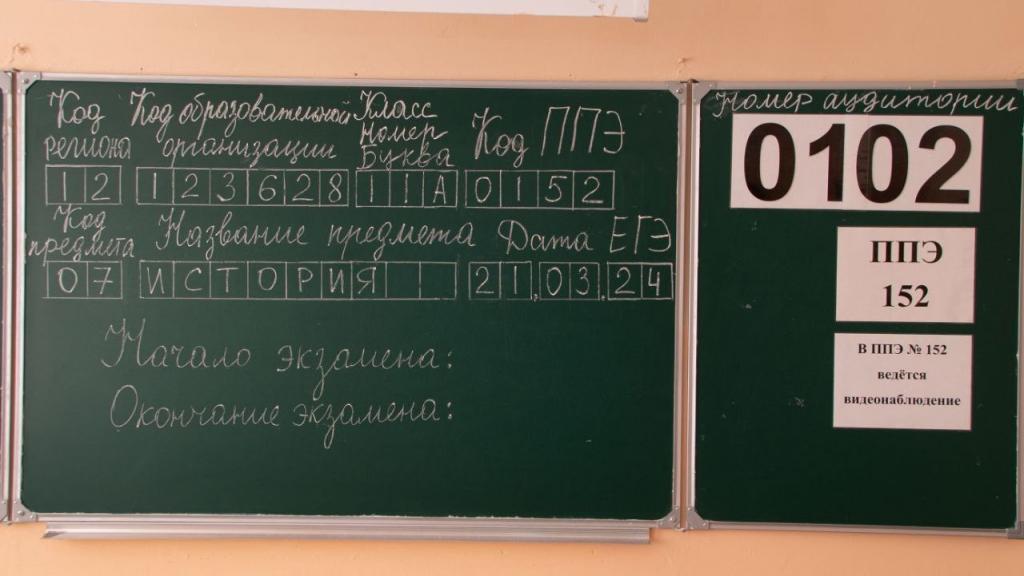 Код
региона
Код образовательной
организации
Класс
Номер
Буква
Код ППЭ
12
123628
11А
0152
Код
предмета
Название предмета
Дата ЕГЭ
07
ИСТОРИЯ
21.03.24
Начало экзамена:
Окончание экзамена:
Номер аудитории
0102
ППЭ
152
В ППЭ № 152
ведётся
видеонаблюдение